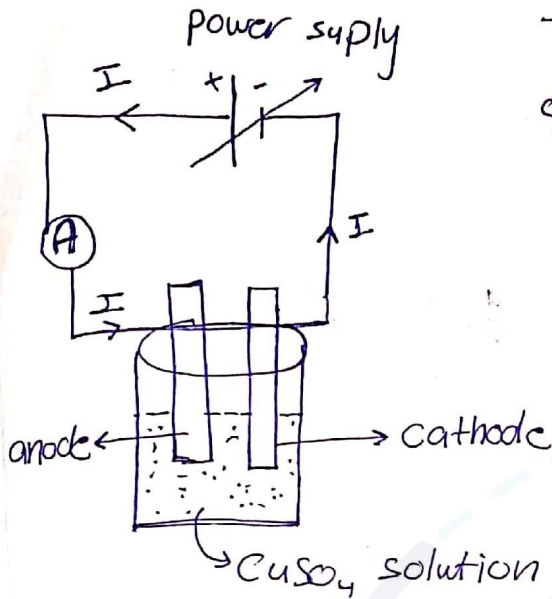 power suply
I
+ -
A
I
I
anode
cathode
CuSO₄ solution